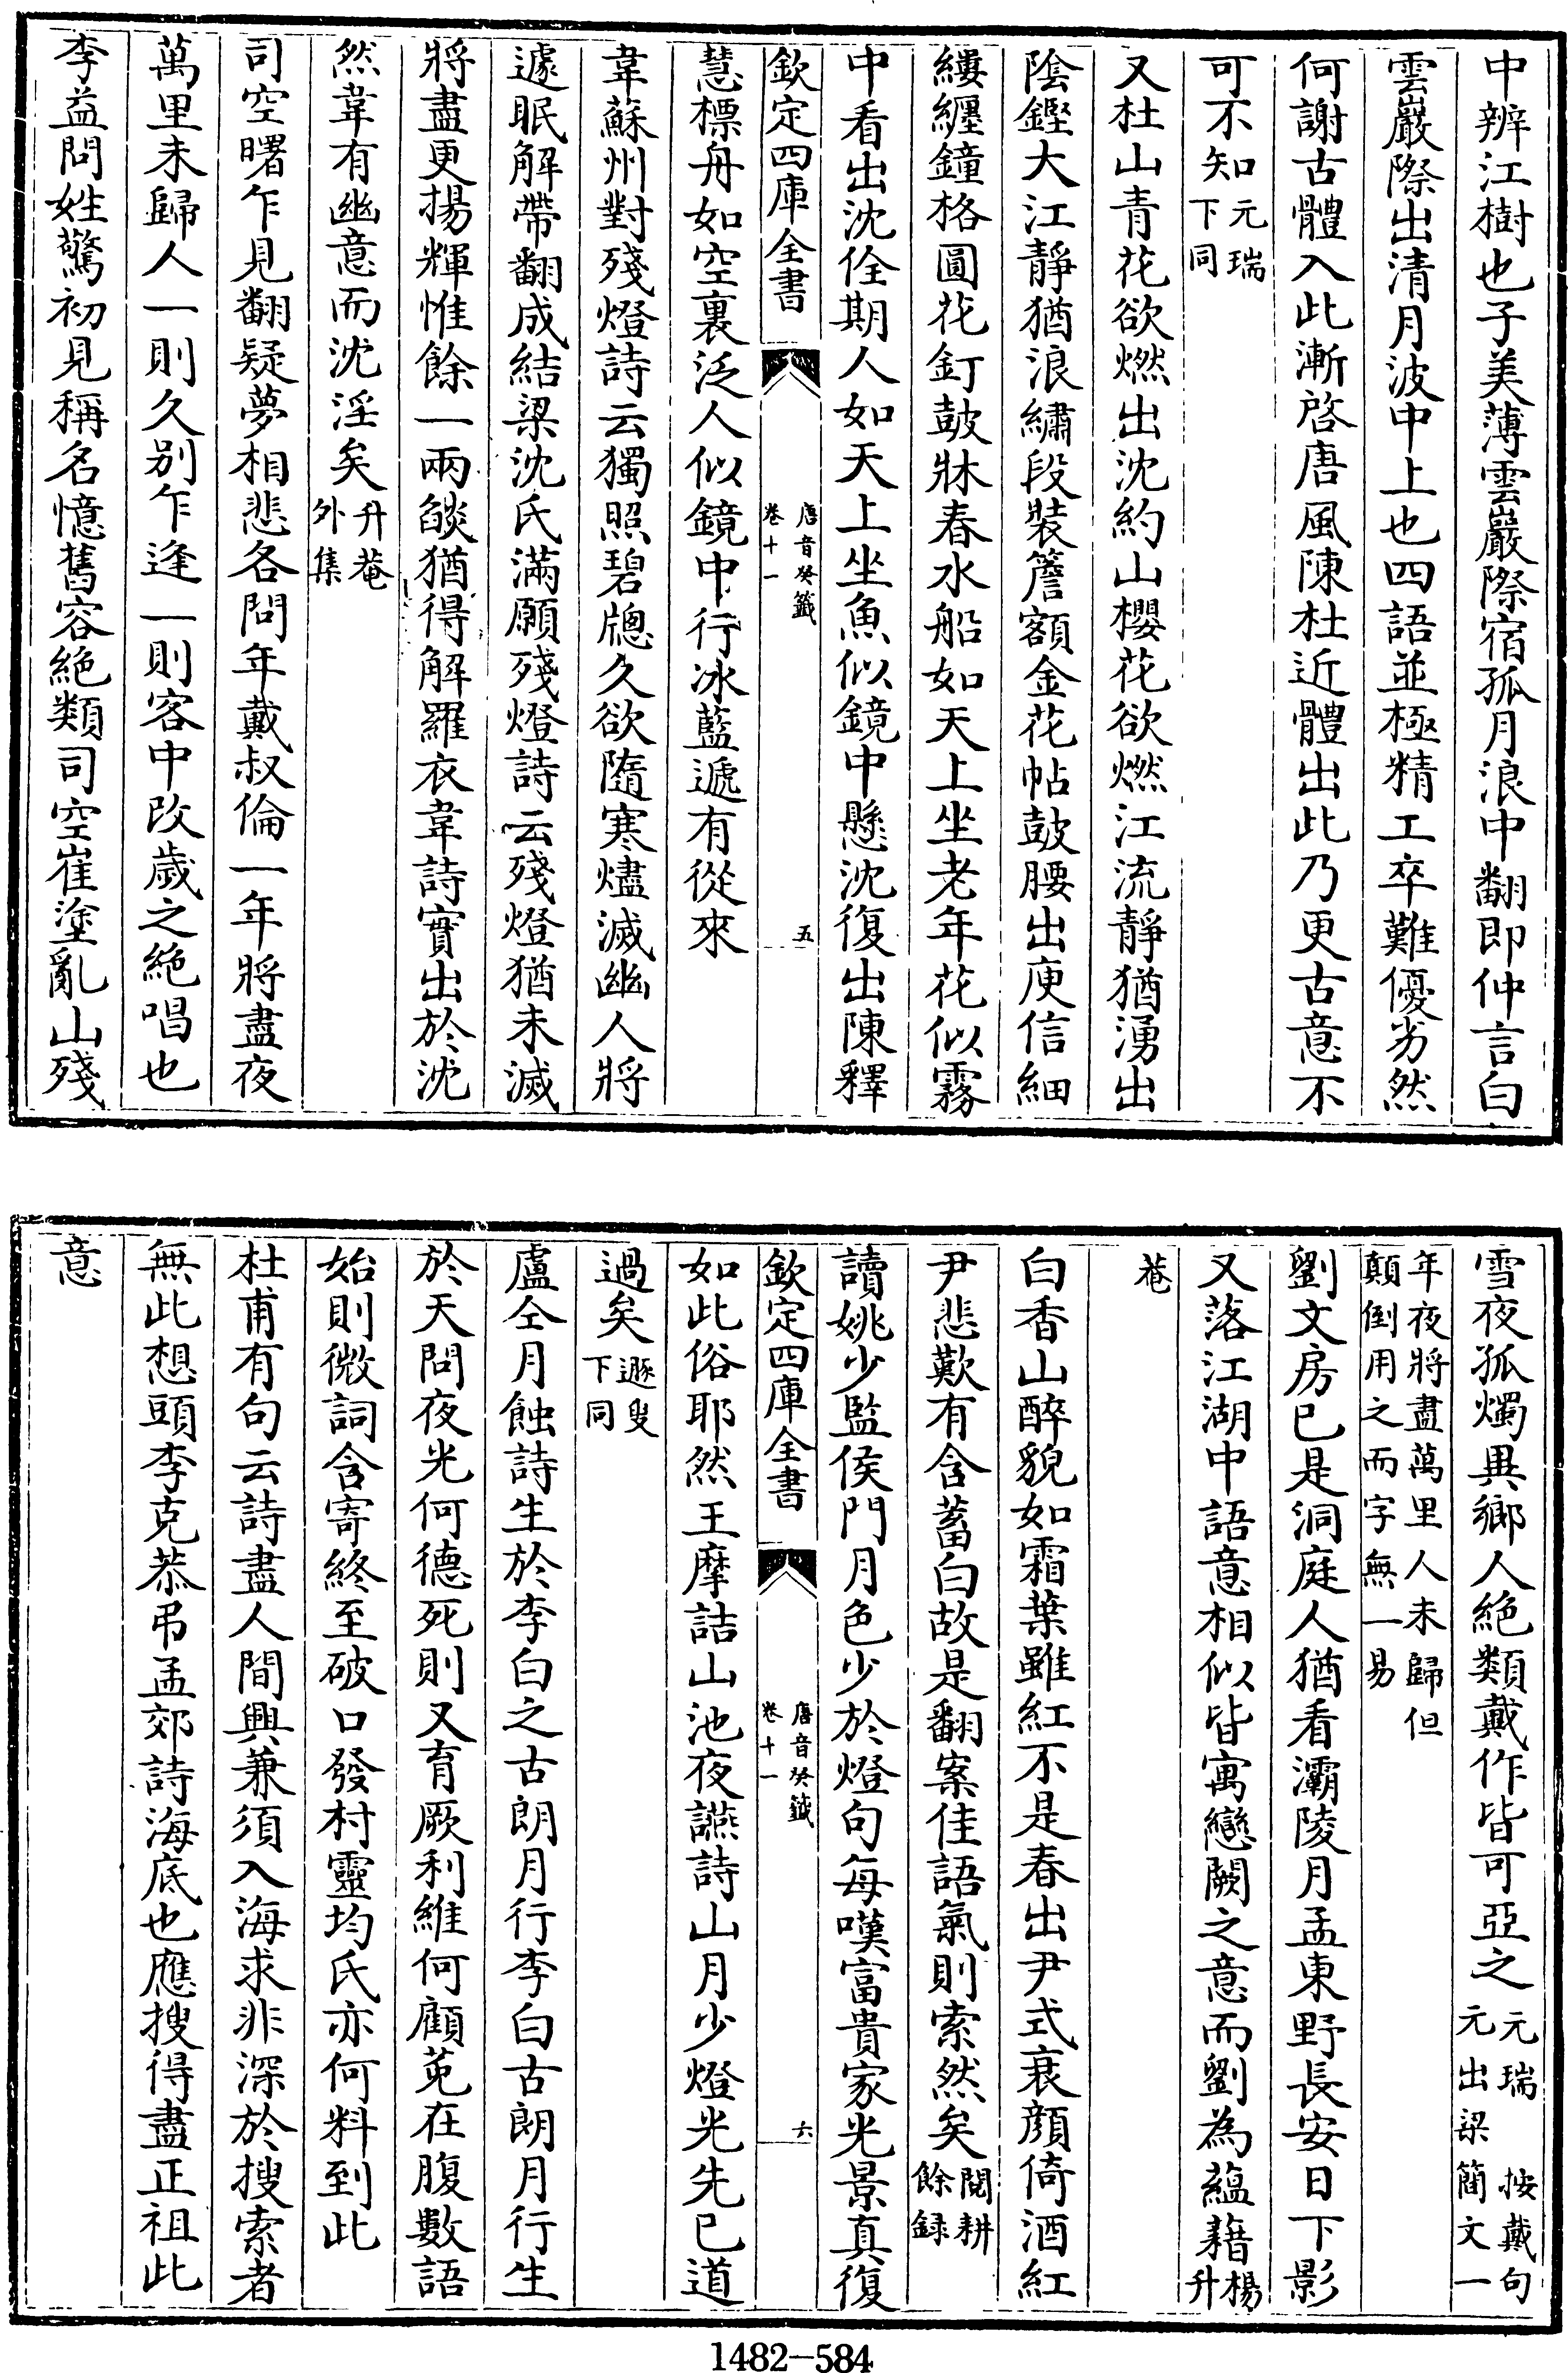 中辨江樹也子美薄雲巖際宿孤月浪中翻即仲言白
雲巖際出清月波中上也四語並極精工卒難優劣然
何謝古體入此漸啓唐風陳杜近體出此乃更古意不
可不知元瑞下同
又杜山青花欲燃出沈約山櫻花欲燃江流靜猶湧出
陰鏗大江靜猶浪繡段裝簷額金花帖鼓腰出庾信細
縷纏鐘格圓花釘鼓牀春水船如天上坐老年花似霧
中看出沈佺期人如天上坐魚似鏡中懸沈復出陳釋
欽定四庫全書 唐音癸籤卷十一 五
慧標舟如空裏泛人似鏡中行冰藍遞有從來
韋蘇州對殘燈詩云獨照碧牕久欲隨寒燼滅幽人將
遽眠解帶翻成結梁沈氏滿願殘燈詩云殘燈猶未滅
將盡更揚輝惟餘一兩燄猶得解羅衣韋詩實出於沈
然韋有幽意而沈淫矣升菴外集
司空曙乍見翻疑夢相悲各問年戴叔倫一年將盡夜
萬里未歸人一則久别乍逢一則客中改歲之絶唱也
李益問姓驚初見稱名憶舊容絶類司空崔塗亂山殘
雪夜孤燭異鄉人絶類戴作皆可亞之元瑞 按戴句元出梁簡文一
年夜將盡萬里人未歸但顛倒用之而字無一易
劉文房已是洞庭人猶看灞陵月孟東野長安日下影
又落江湖中語意相似皆寓戀闕之意而劉為蘊藉楊升
菴
白香山醉貌如霜葉雖紅不是春出尹式衰顔倚酒紅
尹悲歎有含蓄白故是翻案佳語氣則索然矣閱耕餘録
讀姚少監侯門月色少於燈句每嘆富貴家光景真復
欽定四庫全書 唐音癸籤卷十一 六
如此俗耶然王摩詰山池夜讌詩山月少燈光先已道
過矣遯叟下同
盧仝月蝕詩生於李白之古朗月行李白古朗月行生
於天問夜光何德死則又育厥利維何顧菟在腹數語
始則微詞含寄終至破口發村靈均氏亦何料到此
杜甫有句云詩盡人間興兼須入海求非深於搜索者
無此想頭李克恭弔孟郊詩海底也應搜得盡正祖此
意
1482-584